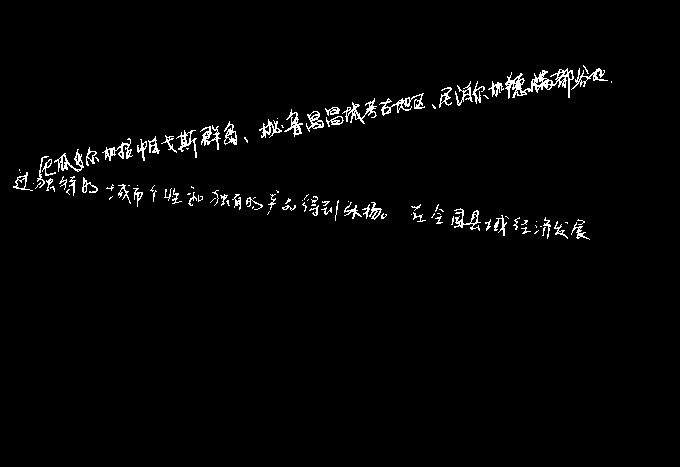 厄瓜多尔加拉帕戈斯群岛、秘鲁昌昌城考古地区、尼泊尔加德满都谷地.
过独特的城市个性和独有的产品得到弘扬。在全国县域经济发展